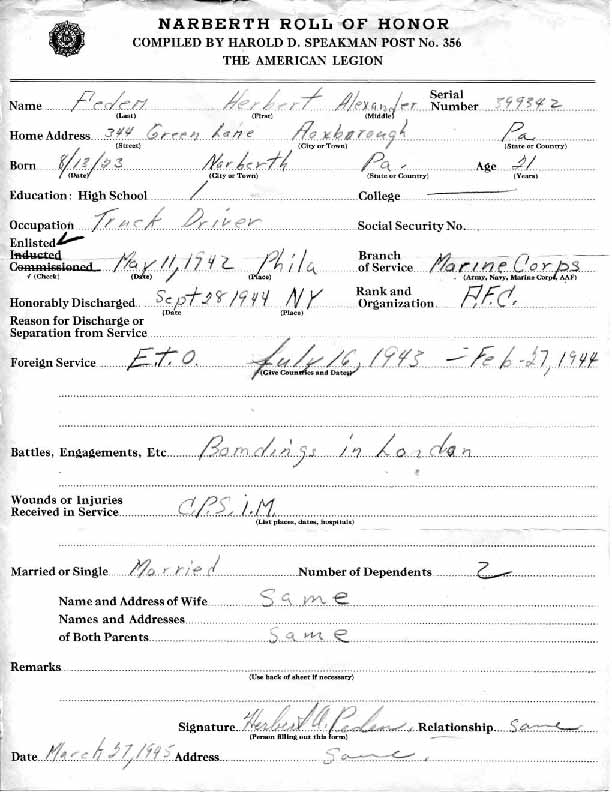 NARBERTH ROLL OF HONOR
COMPILED BY HAROLD D. SPEAKMAN POST No. 356
THE AMERICAN LEGION
Name Peden Herbert Alexander Serial Number 399342
(Last) (First) (Middle)
Home Address 344 Green Lane Roxborough Pa
(Street) (City or Town) (State or Country)
Born 8/13/23 Narberth Pa. Age 21
(Date) (City or Town) (State or Country) (Years)
Education: High School / College
Occupation Truck Driver Social Security No.
Enlisted ✓
Inducted
Commissioned May 11, 1942 Phila Branch of Service Marine Corps
✓ (Check) (Date) (Place) (Army, Navy, Marine Corps, AAF)
Honorably Discharged Sept 28 1944 NY Rank and Organization P.F.C.
(Date (Place)
Reason for Discharge or
Separation from Service
Foreign Service E.T.O. July 16, 1943 - Feb-27, 1944
(Give Countries and Dates)
Battles, Engagements, Etc Bomdings in London
Wounds or Injuries
Received in Service C.P.S.I.M.
(List places, dates, hospitals)
Married or Single Married Number of Dependents 2
Name and Address of Wife Same
Names and Addresses
of Both Parents Same
Remarks
(Use back of sheet if necessary)
Signature Herbert A. Peden. Relationship Same
(Person filling out this form)
Date March 27, 1945 Address Same.